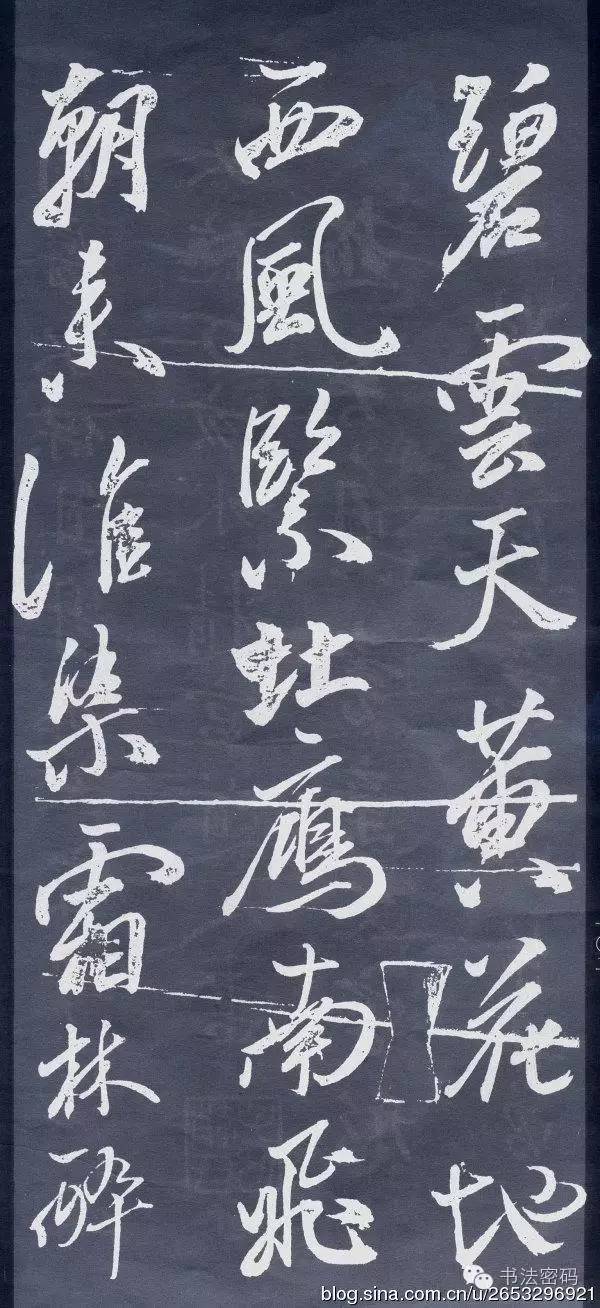 碧雲天黄花地
西風緊北鴈南飛
朝来誰染霜林醉
书法密码
blog.sina.com.cn/u/2653296921